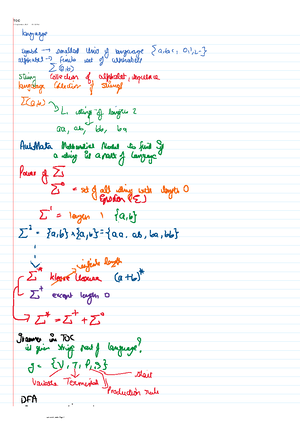 TOC
language
symbol → smallest unit of language {a, b, c, 0, 1, 2, -}
alphabet → finite set of
Σ(a,b)
string collection of alphabet, sequence
language collection of strings
Σ(a,b)
→ L string of length 2
aa, ab, bb, ba
Automata Mathematical Model to find if
a string is a part of language
Power of Σ
Σ⁰ = set of all string with length 0
Epsilon (Σ)
Σ¹ = length 1 {a,b}
Σ² = {a,b} × {a,b} = {aa, ab, ba, bb}
infinite length
Σ* kleene closure (a+b)*
Σ⁺ except length 0
→ Σ* = Σ⁺ + Σ⁰
Grammar in TOC
is given string part of language?
g = {V, T, P, S}
start
Variable Terminal
Production rule
DFA